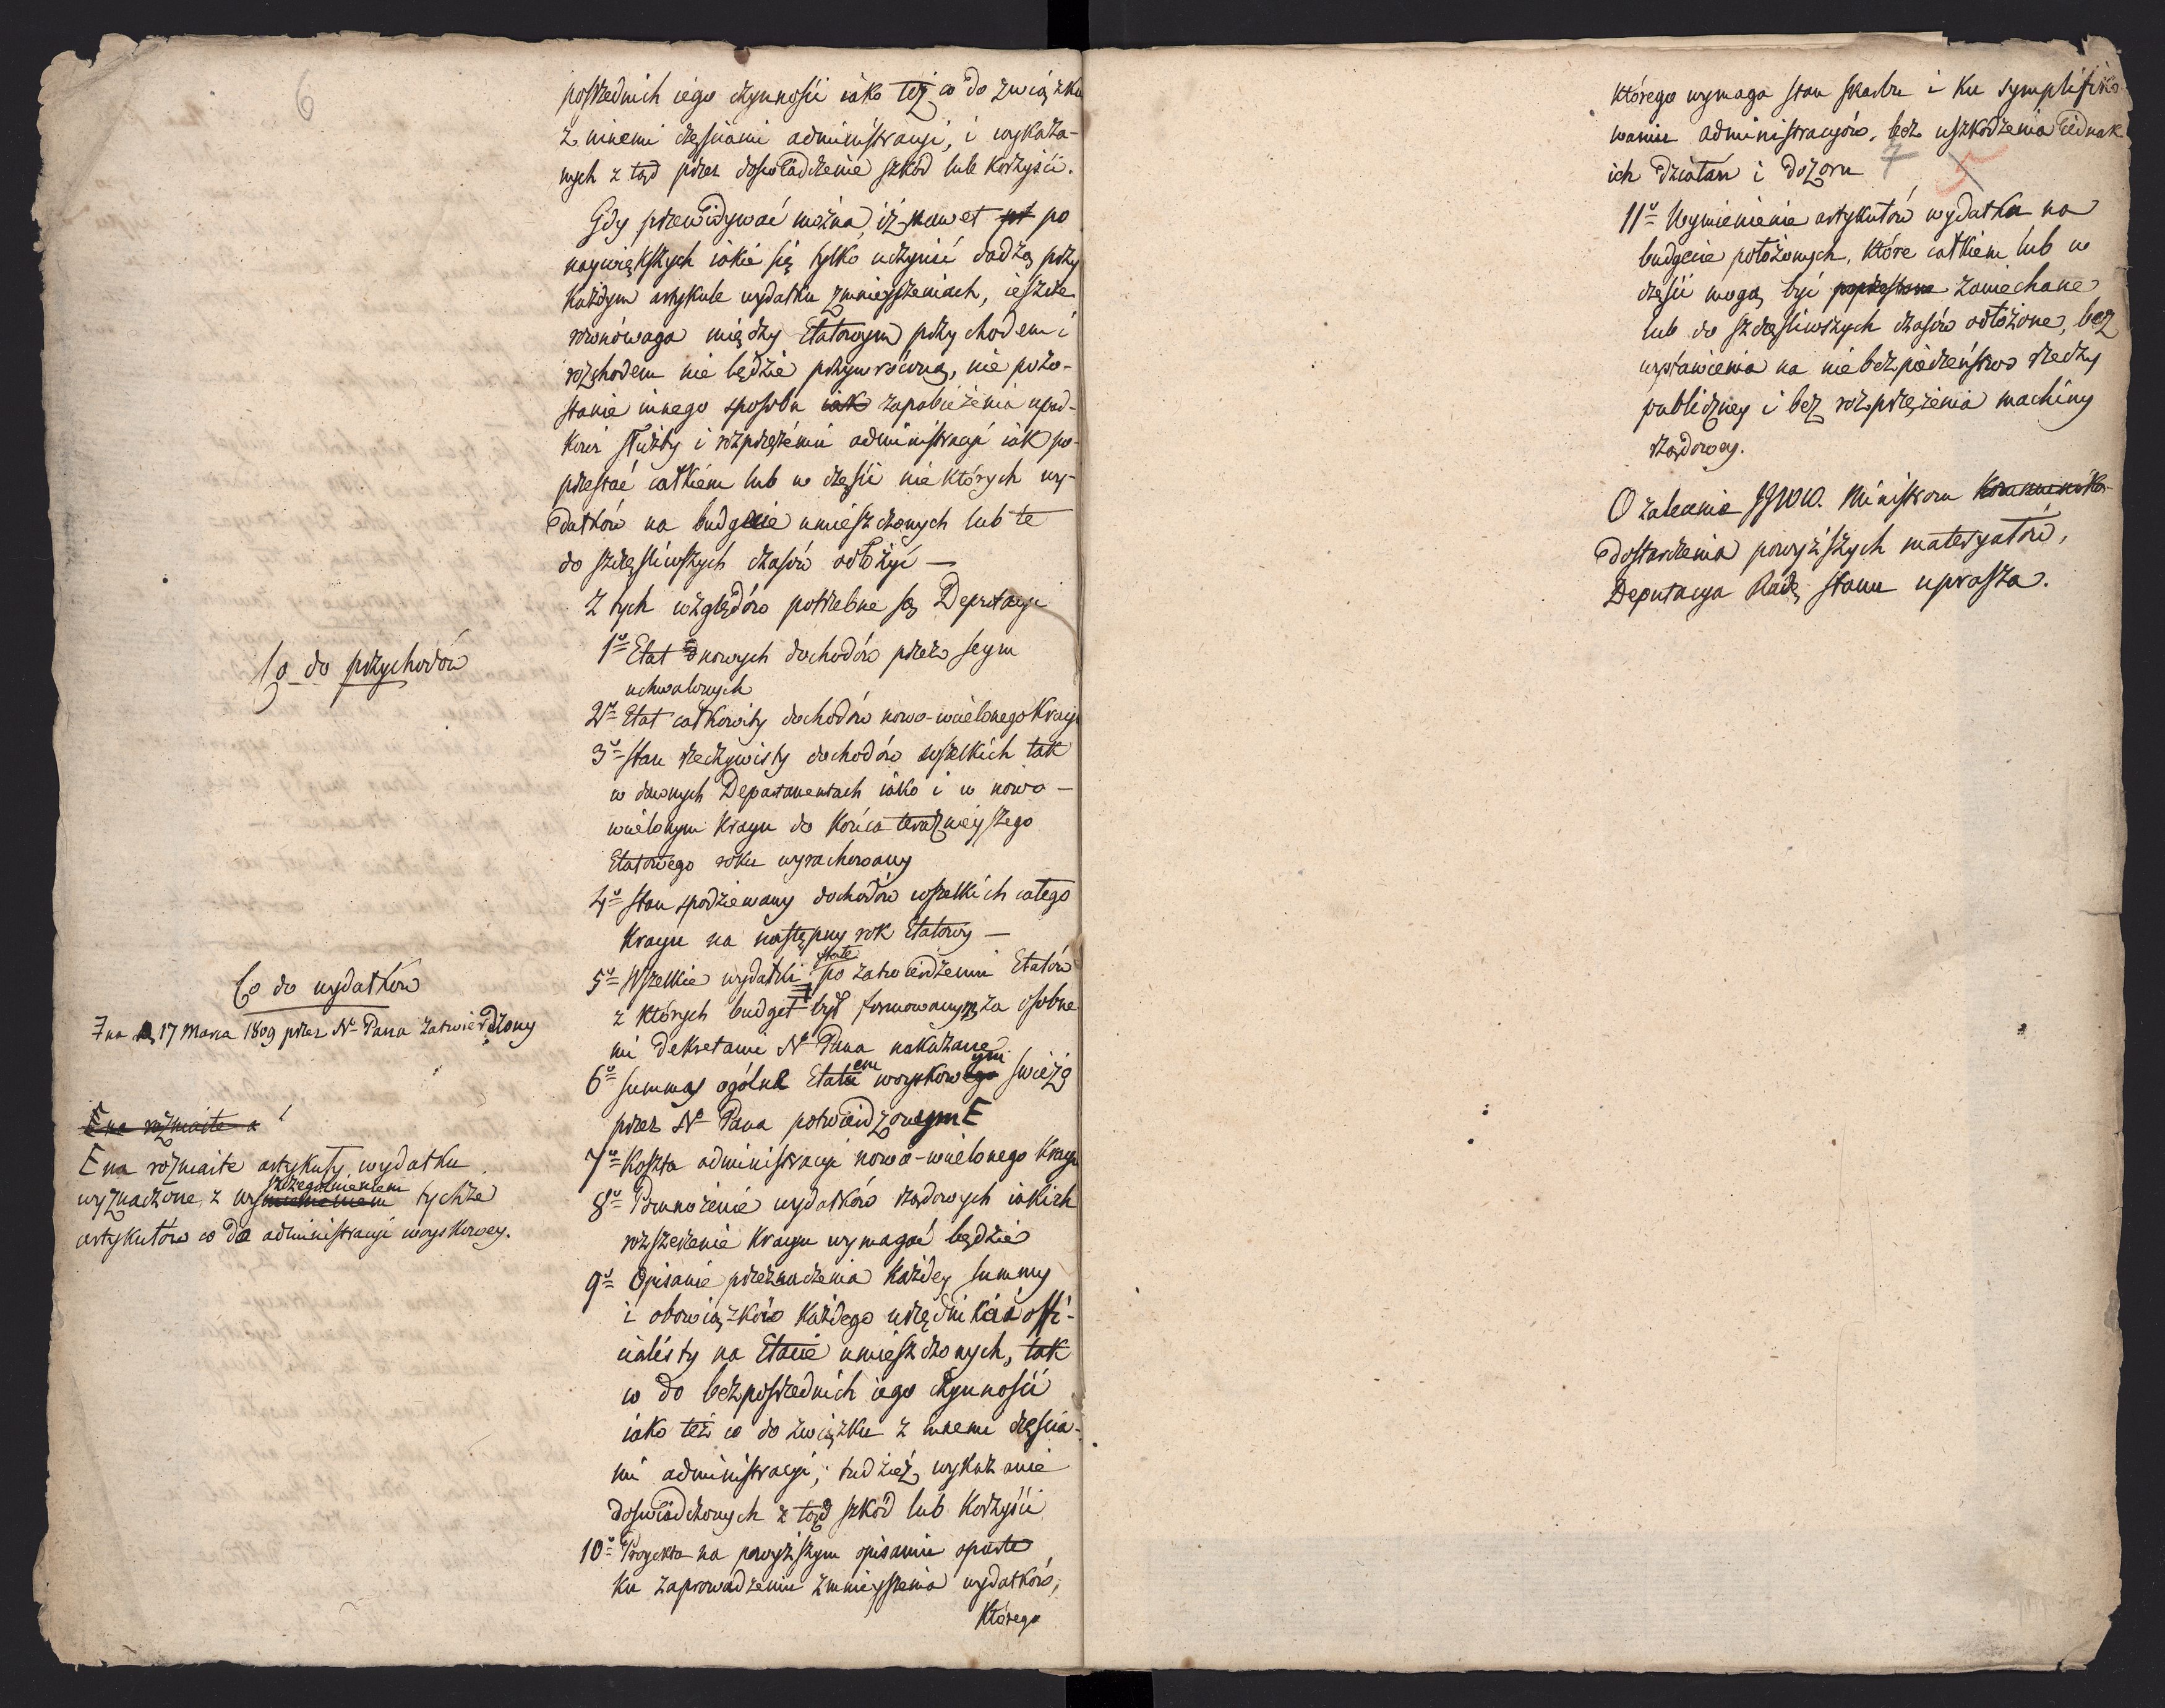 6
pośrednich iego czynności iako też co do związku
z innemi częściami administracyi, i wykaza-
nych z tąd przez doświadczenie szkód lub korzyści.
Gdy przewidywać można, iż nawet po
naywiększych iakie się tylko uczynić dadzą przy
każdym artykule wydatku zmnieyszeniach, ieszcze
rownowaga między Etatowym przychodem i
rozchodem nie będzie przywróconą, nie pozo-
stanie innego sposobu iak zapobieżenia upad-
kowi służby i rozprzężeniu administracyi iak po-
przestać całkiem lub w części niektórych wy-
datków na budgecie umieszczonych lub te
do szczęśliwszych czasów odłożyć —
Z tych względów potrzebne są Deputacyi
Co do przychodów
1º Etat nowych dochodów przez seym
uchwalonych
2º Etat całkowity dochodów nowo-wcielonego Kraiu
3º stan rzeczywisty dochodów wszelkich tak
w dawnych Departamentach iako i w nowo-
wcielonym Kraiu do końca teraźnieyszego
Etatowego roku wyrachowany
4º stan spodziewany dochodów wszelkich całego
Kraiu na następny rok Etatowy —
Co do wydatków
5º Wszelkie wydatki stałe po zatwierdzeniu Etatów
z których budget był formowanym, za osobne
mi dekretami Nº Pana nakazane
na 17 Marca 1809 przez Nº Pana zatwierdzony
6º summay ogólne Etatem woyskowym świeżo
przez Nº Pana potwierdzonym E
E na rozmaite a
E na rozmaite artykuły wydatku
wyznaczone, z wyszczególnieniem tychże
artykułów co do administracyi woyskowey.
7º Koszta administracyi nowo-wcielonego Kraiu
8º Pomnożenie wydatków rządowych iakich
rozszerzenie Kraiu wymagać będzie
9º Opisanie przeznaczenia każdey summy
i obowiązków każdego urzędnika i offi-
cialisty na Etacie umieszczonych, tak
co do bezpośrednich iego czynności
iako też co do związku z innemi częścia-
mi administracyi; tudzież wykazanie
doświadczonych z tąd szkód lub korzyści
10º Proyekta na powyższym opisaniu oparte
ku zaprowadzeniu zmnieyszenia wydatków,
którego
którego wymaga stan skarbu i ku symplifiko-
waniu administracyów, bez uszkodzenia iednak
ich działań i dozoru
7 5
11º Wymienienie artykułów wydatku na
budgecie położonych, które całkiem lub w
części mogą być poprzestane zaniechane
lub do szczęśliwszych czasów odłożone, bez
wystawienia na niebezpieczeństwo rzeczy
publiczney i bez rozprzężenia machiny
rządowey.
O zalecenie JJWW. Ministrom
dostarczenia powyższych materyałów,
Deputacya Radę stanu uprasza.